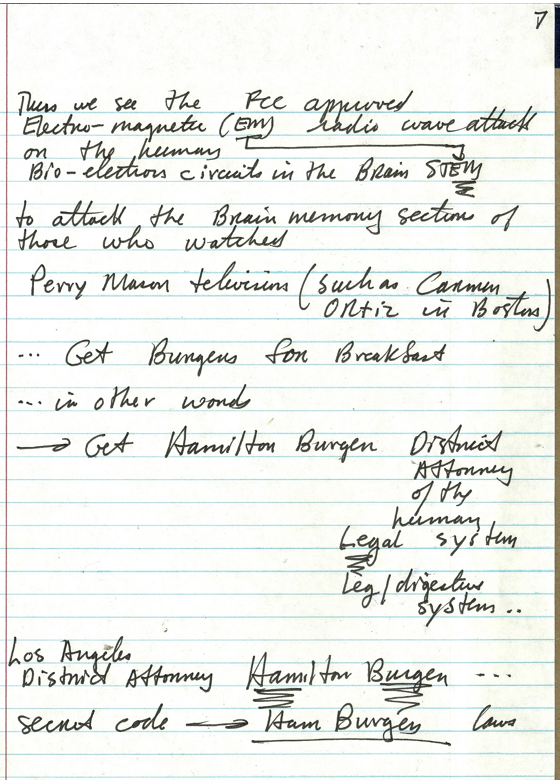 7
Thus we see the FCC approved
Electro-magnetic (EM) radio wave attack
on the human
Bio-electrons circuits in the Brain STEM
to attack the Brain memory sections of
those who watched
Perry Mason television (such as Carmen
ORTiz in Boston)
... Get Burgers for Breakfast
... in other words
→ Get Hamilton Burger District
Attorney
of the
human
Legal system
Leg/digestive
system ..
Los Angeles
District Attorney Hamilton Burger ...
secret code → Ham Burger laws